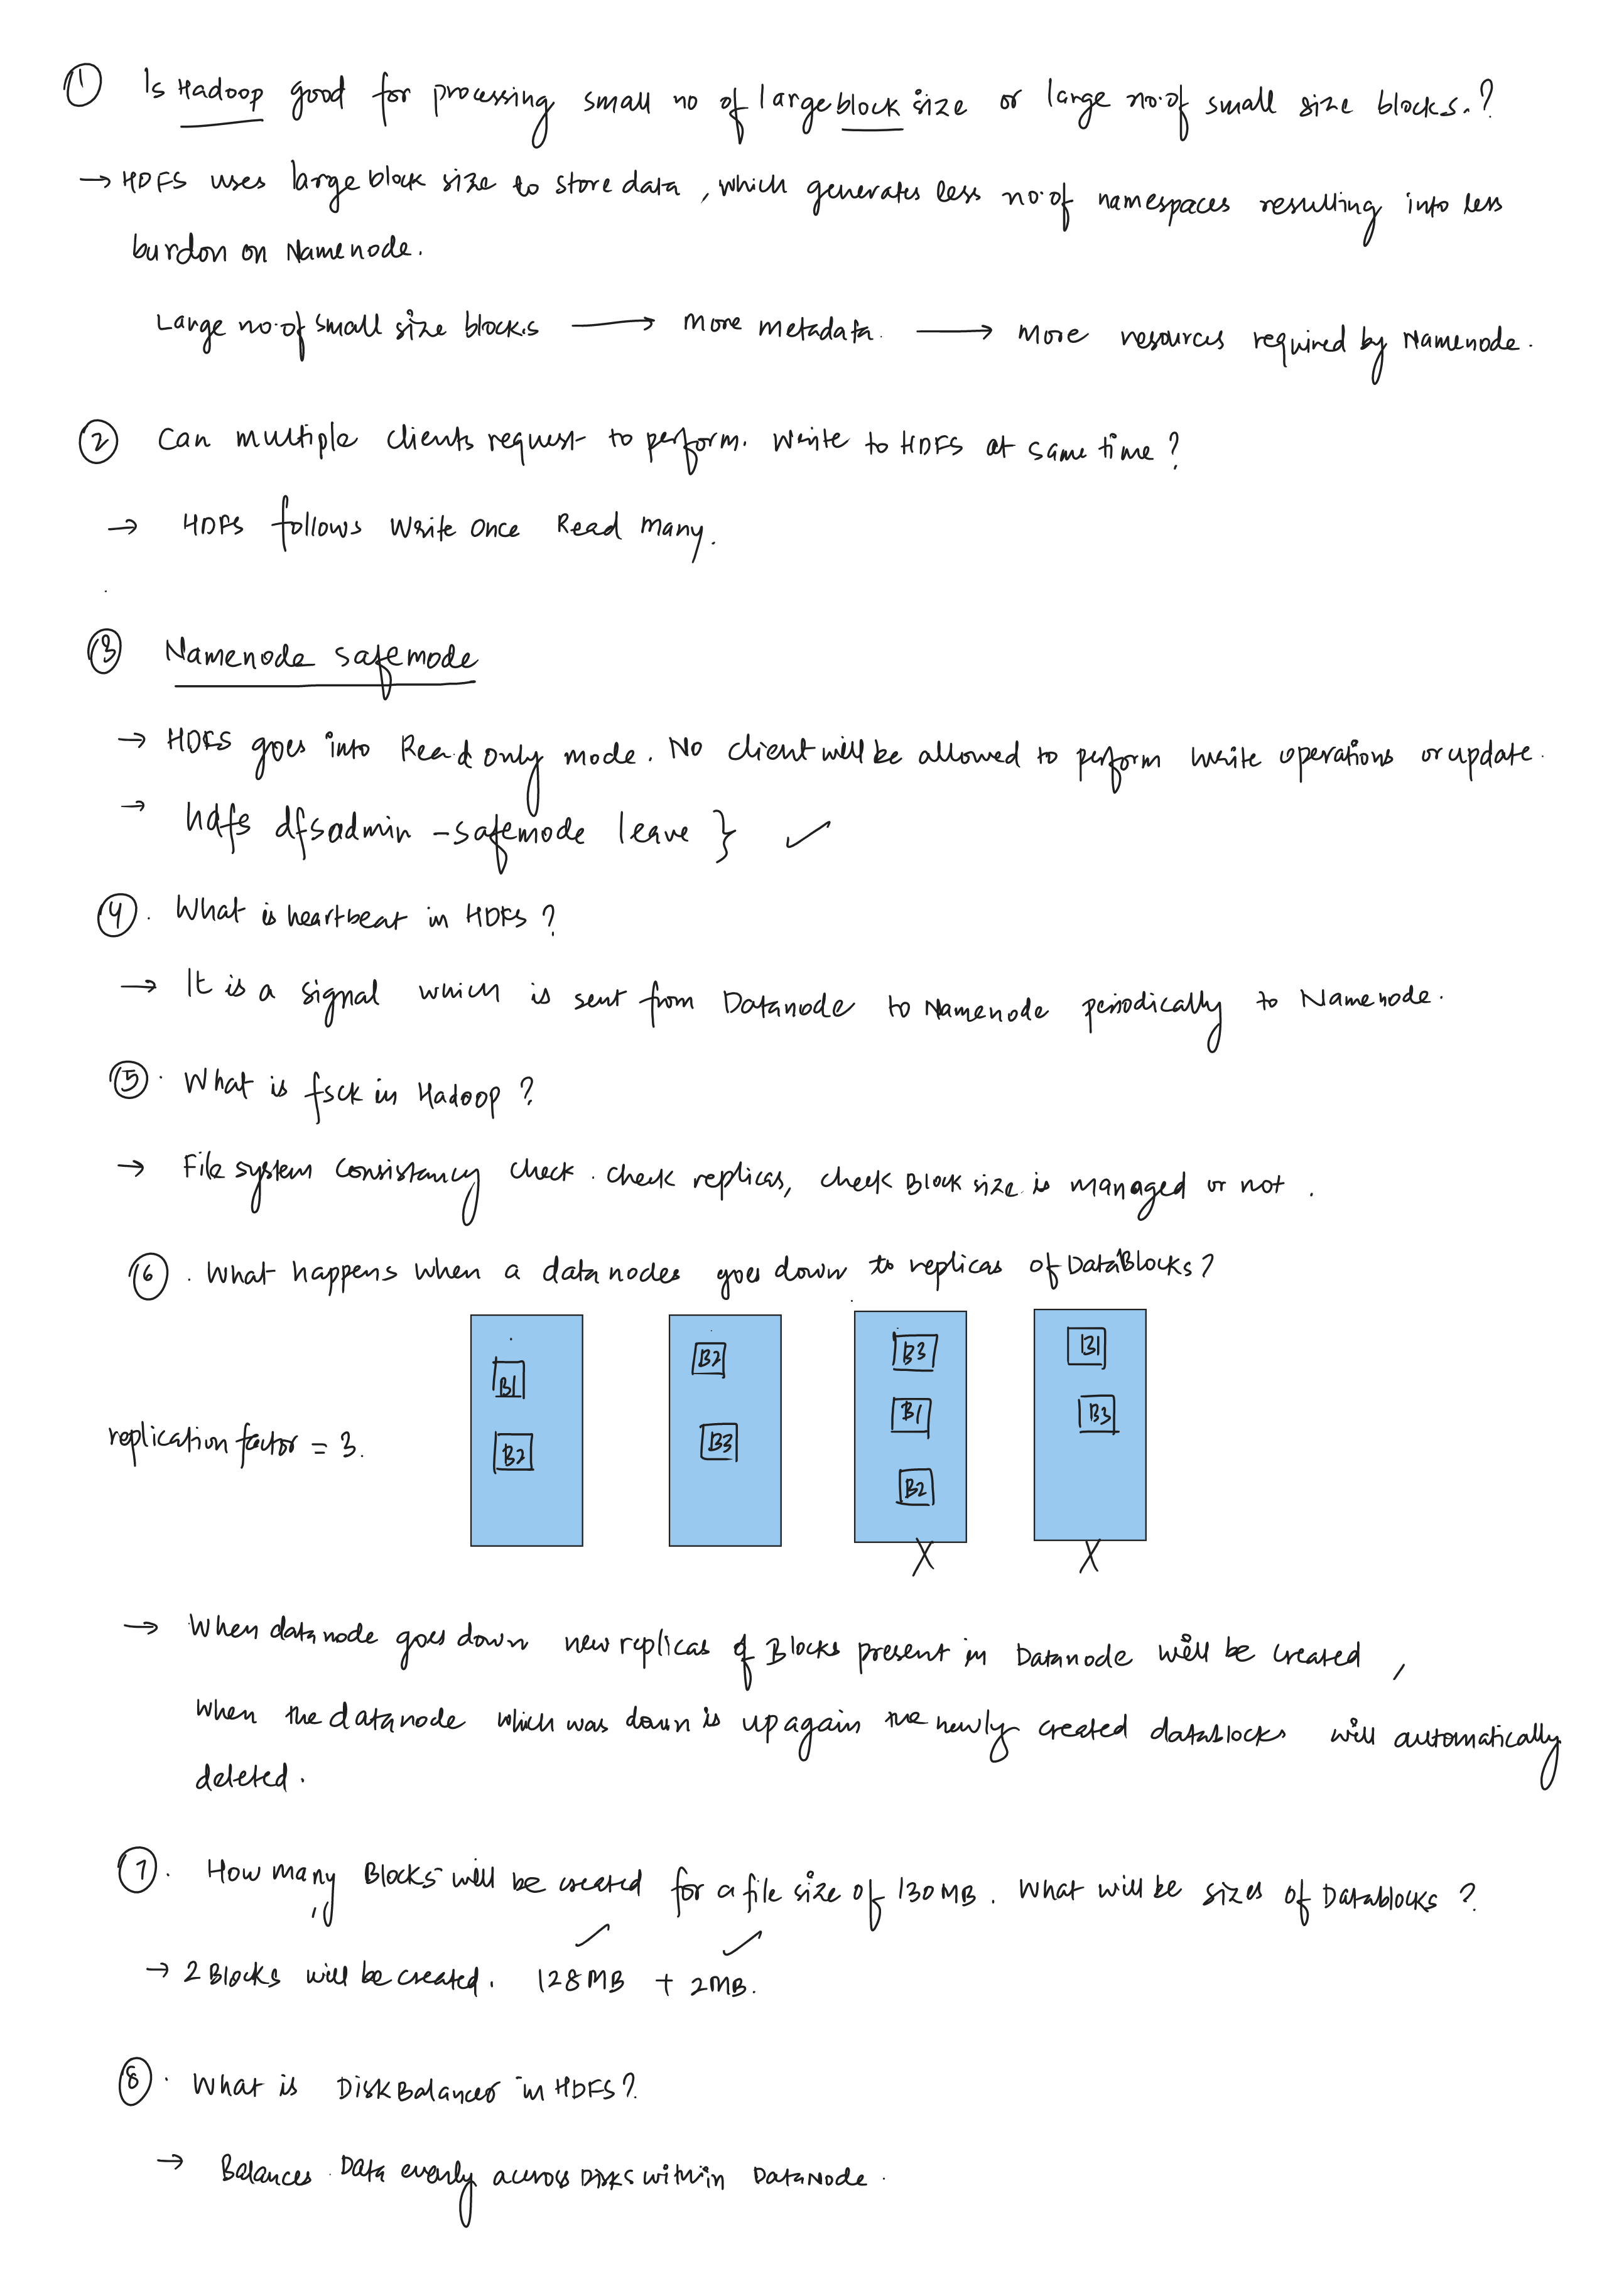 ① Is Hadoop good for processing small no of large block size or large no.of small size blocks.?
→ HDFS uses large block size to store data, which generates less no.of namespaces resulting into less
burdon on Namenode.
Large no.of small size blocks → More metadata. → More resources required by Namenode.
② Can multiple clients request to perform. Write to HDFS at same time?
→ HDFS follows Write Once Read Many.
③ Namenode safemode
→ HDFS goes into Read only mode. No client will be allowed to perform write operations or update.
→ hdfs dfsadmin -safemode leave } ✓
④. What is heartbeat in HDFS?
→ It is a signal which is sent from Datanode to Namenode periodically to Namenode.
⑤. What is fsck in Hadoop?
→ File system Consistancy Check. Check replicas, check Block size is managed or not.
⑥. What happens when a data nodes goes down to replicas of DataBlocks?
B1 B2 B3 B1
replication factor = 3. B2 B3 B1 B3
B2
X X
→ When datanode goes down new replicas of Blocks present in Datanode will be created,
when the datanode which was down is up again the newly created datablocks will automatically
deleted.
⑦. How many Blocks will be created for a file size of 130 MB. What will be sizes of Datablocks?
✓ ✓
→ 2 Blocks will be created. 128 MB + 2MB.
⑧. What is Disk Balancer in HDFS?
→ Balances Data evenly across Disks within DataNode.